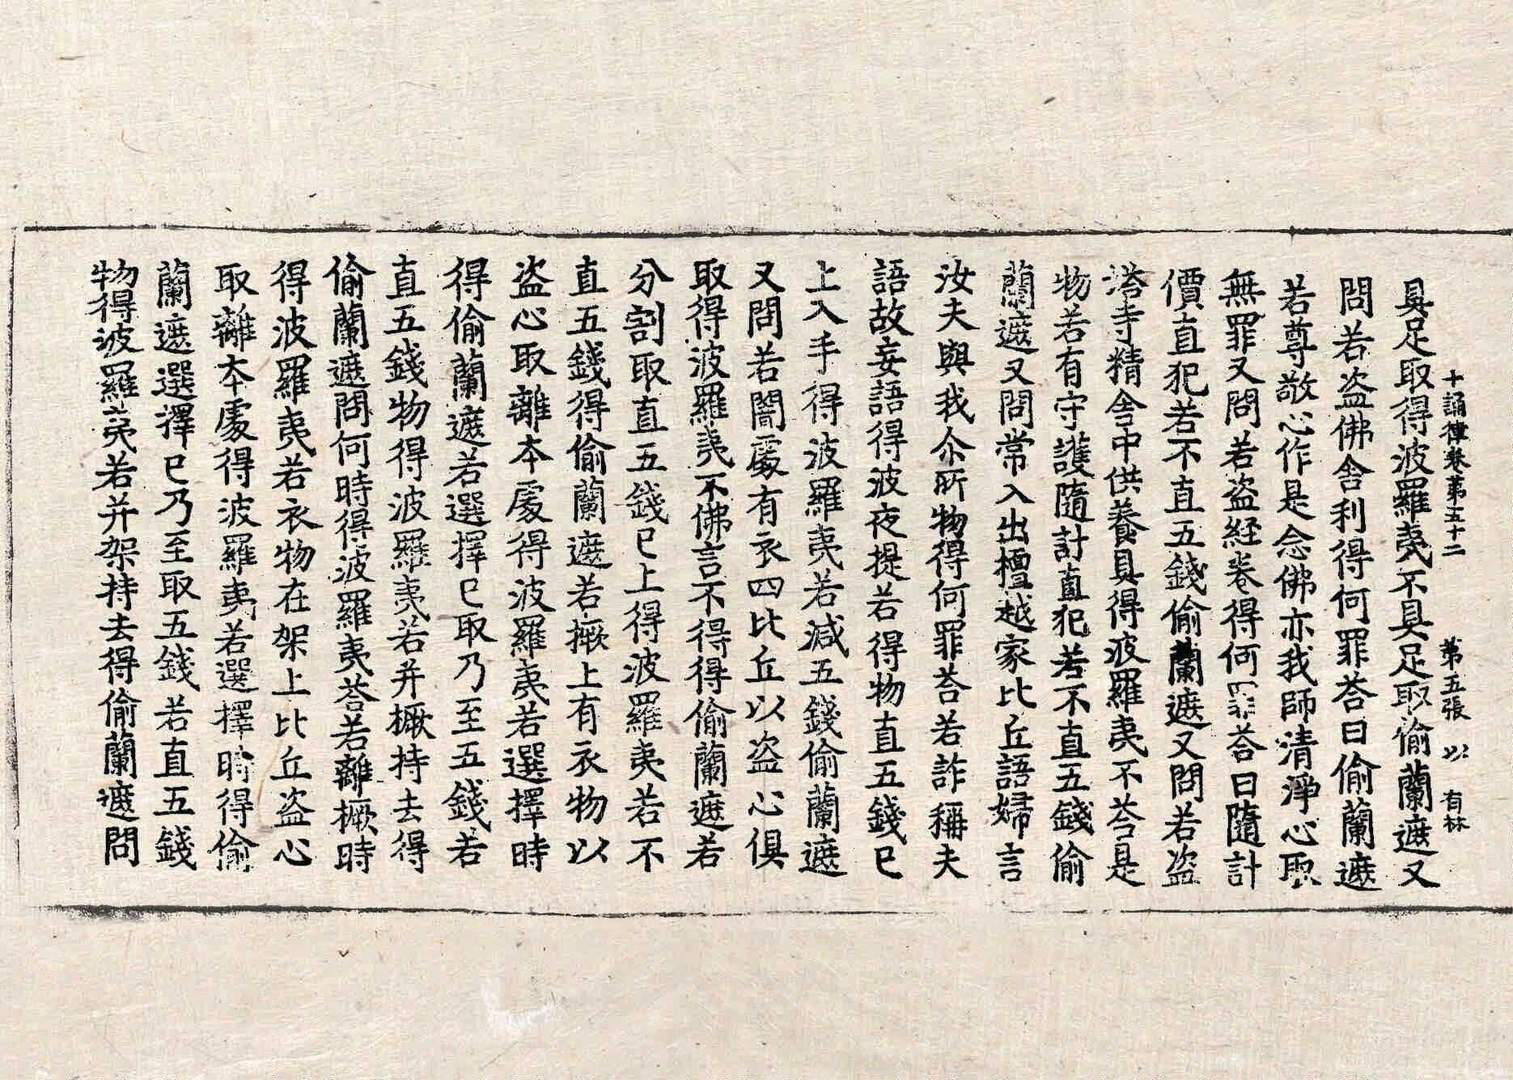 十誦律卷苐五十二 苐五張 以 有林
具足取得波羅夷不具足取偷蘭遮又
問若盜佛舍利得何罪荅曰偷蘭遮
若尊敬心作是念佛亦我師清淨心取
無罪又問若盜経卷得何罪荅曰隨計
價直犯若不直五錢偷蘭遮又問若盜
塔寺精舍中供養具得波羅夷不荅是
物若有守護隨計直犯若不直五錢偷
蘭遮又問常入出檀越家比丘語婦言
汝夫與我尒所物得何罪荅若詐稱夫
語故妄語得波夜提若得物直五錢已
上入手得波羅夷若減五錢偷蘭遮
又問若闇處有衣四比丘以盜心俱
取得波羅夷不佛言不得得偷蘭遮若
分割取直五錢已上得波羅夷若不
直五錢得偷蘭遮若橛上有衣物以
盜心取離本處得波羅夷若選擇時
得偷蘭遮若選擇已取乃至五錢若
直五錢物得波羅夷若并橛持去得
偷蘭遮問何時得波羅夷荅若離橛時
得波羅夷若衣物在架上比丘盜心
取離本處得波羅夷若選擇時得偷
蘭遮選擇已乃至取五錢若直五錢
物得波羅夷若并架持去得偷蘭遮問